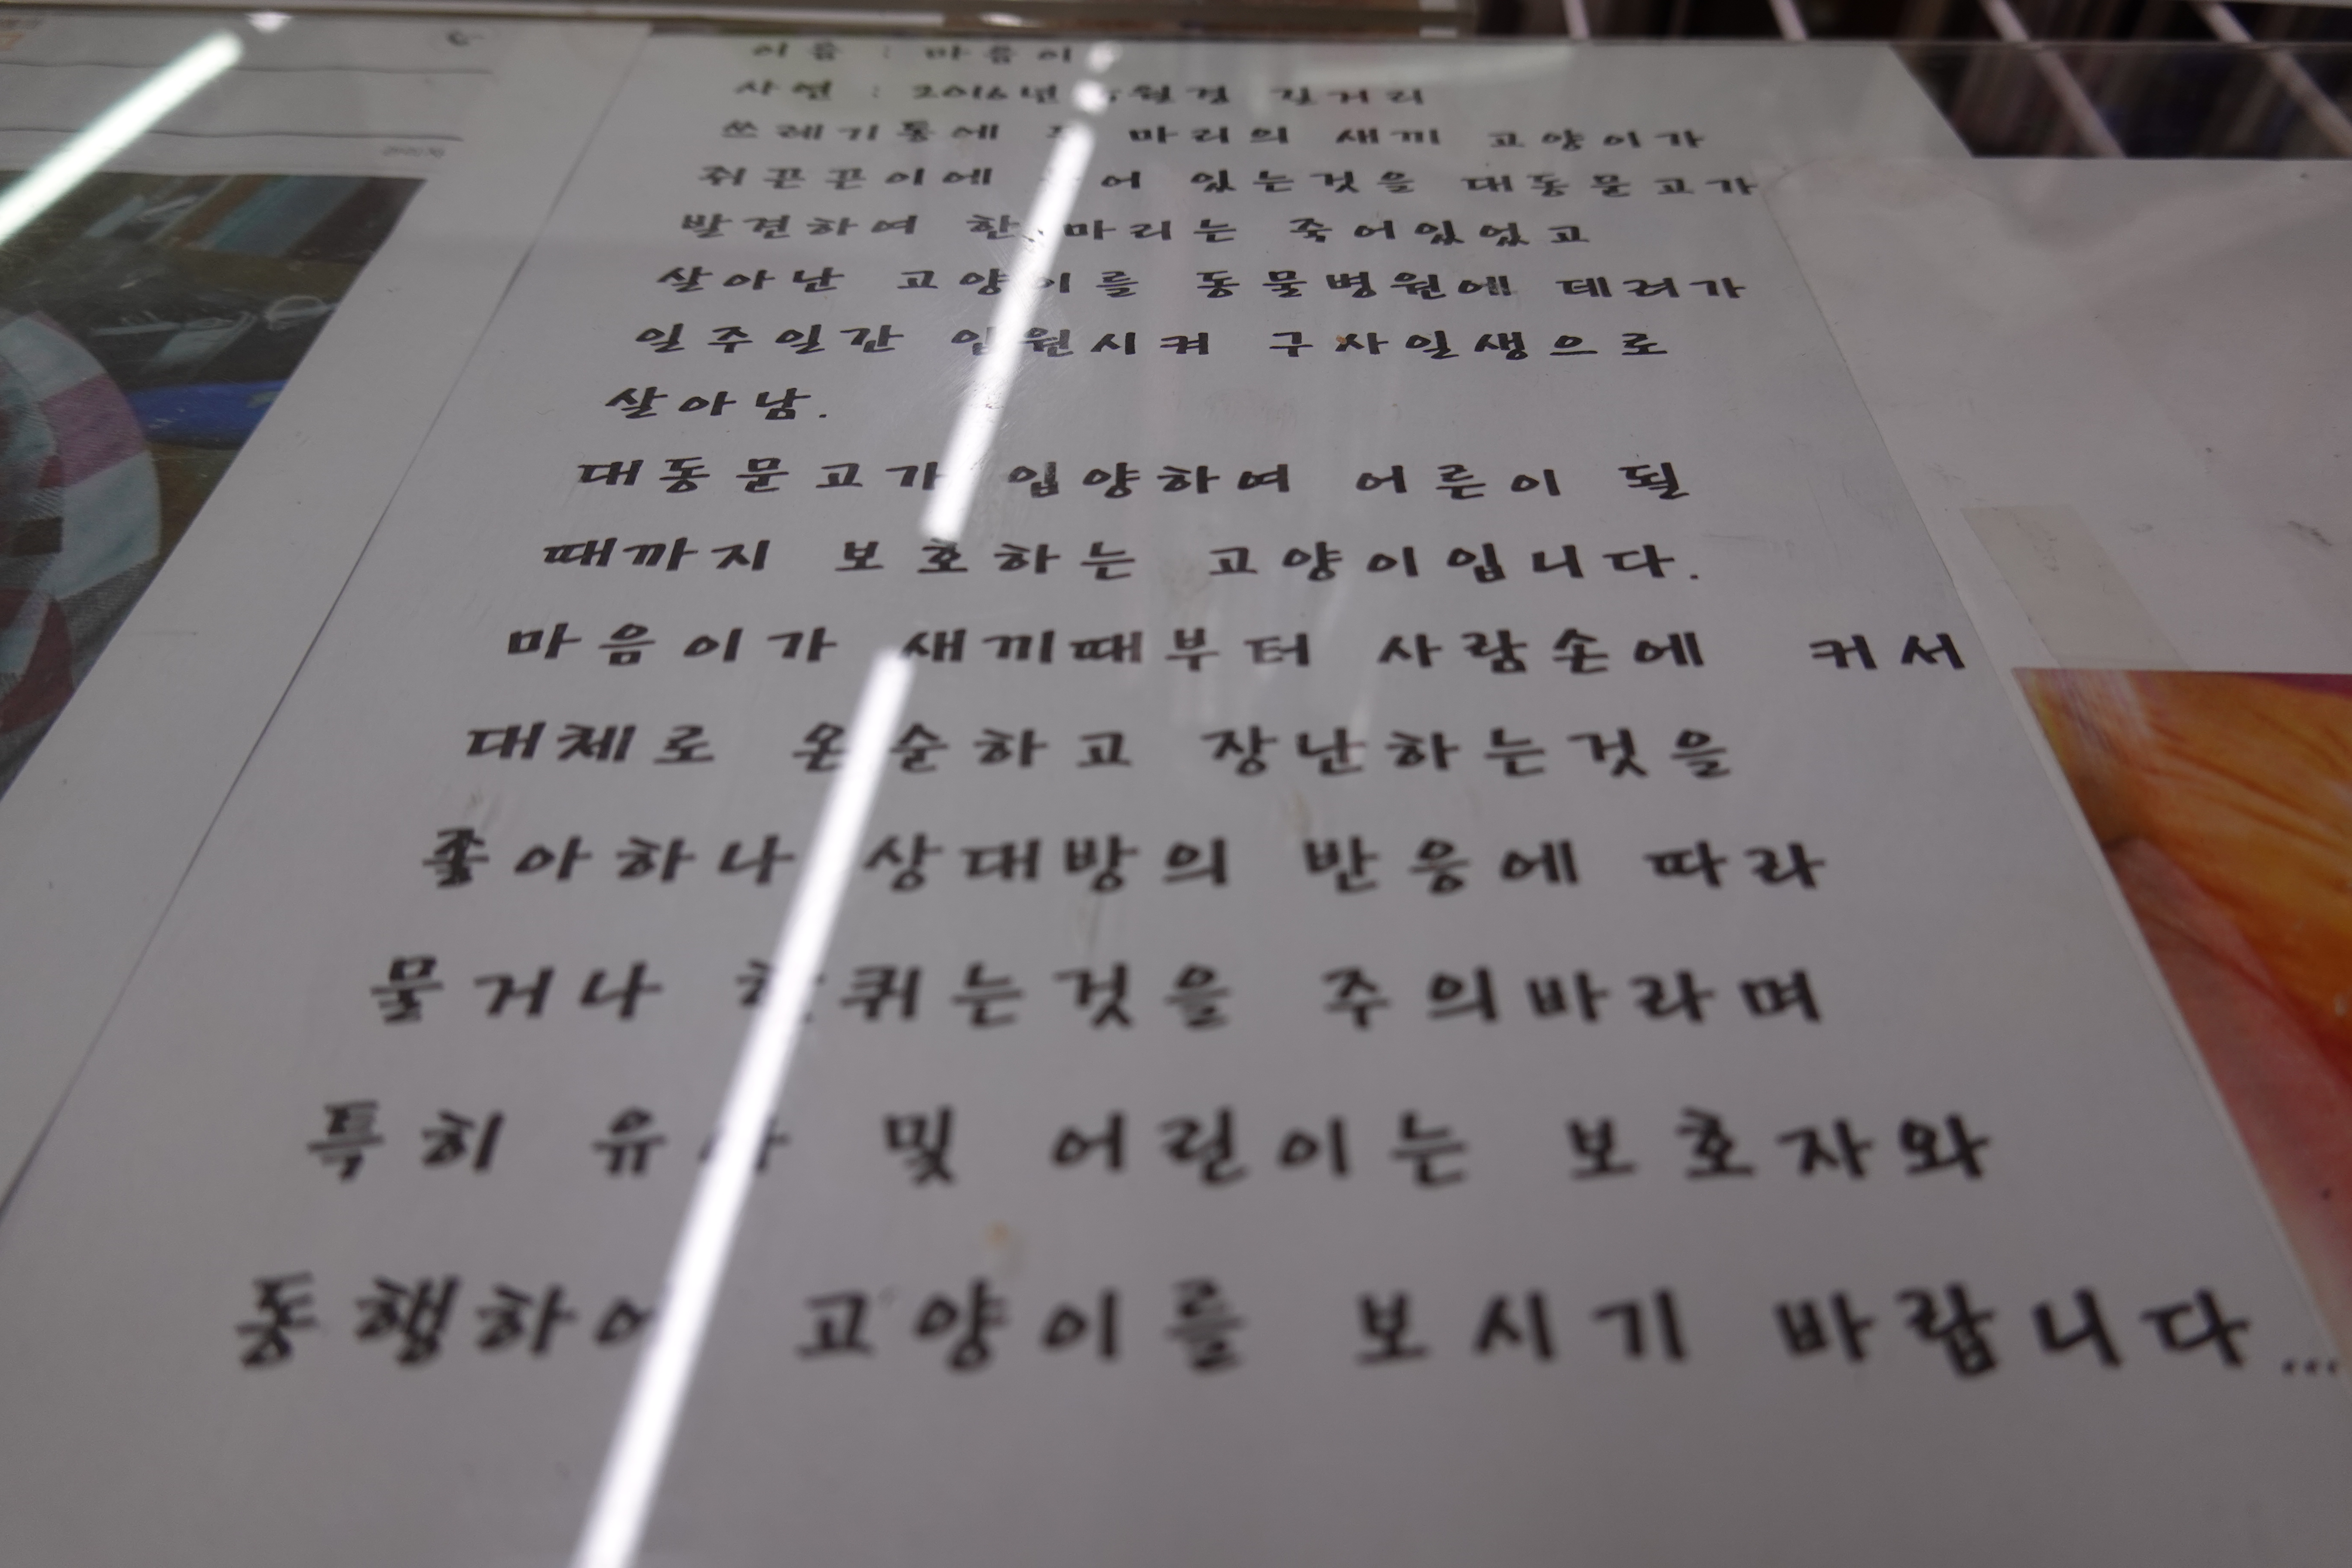 이름 : 마음이
사연 : 2016년 길거리
쓰레기통에 마리의 새끼 고양이가
쥐끈끈이에 있는것을 대동문고가
발견하여 한 마리는 죽어있었고
살아난 고양이를 동물병원에 데려가
일주일간 입원시켜 구사일생으로
살아남.
대동문고가 입양하여 어른이 될
때까지 보호하는 고양이입니다.
마음이가 새끼때부터 사람손에 커서
대체로 온순하고 장난하는것을
좋아하나 상대방의 반응에 따라
물거나 할퀴는것을 주의바라며
특히 및 어린이는 보호자와
동행하여 고양이를 보시기 바랍니다...